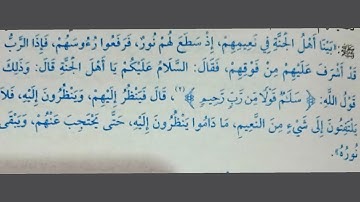 ﷺ: «بَيْنَا أَهْلُ الْجَنَّةِ فِي نَعِيمِهِمْ، إِذْ سَطَعَ لَهُمْ نُورٌ، فَرَفَعُوا رُءُوسَهُمْ، فَإِذَا الرَّبُّ
قَدْ أَشْرَفَ عَلَيْهِمْ مِنْ فَوْقِهِمْ، فَقَالَ: السَّلَامُ عَلَيْكُمْ يَا أَهْلَ الْجَنَّةِ قَالَ: وَذَلِكَ
قَوْلُ اللَّهِ: ﴿سَلَامٌ قَوْلًا مِنْ رَبٍّ رَحِيمٍ﴾(٢)، قَالَ فَيَنْظُرُ إِلَيْهِمْ، وَيَنْظُرُونَ إِلَيْهِ، فَلَا
يَلْتَفِتُونَ إِلَى شَيْءٍ مِنَ النَّعِيمِ، مَا دَامُوا يَنْظُرُونَ إِلَيْهِ، حَتَّى يَحْتَجِبَ عَنْهُمْ، وَيَبْقَى
نُورُهُ».